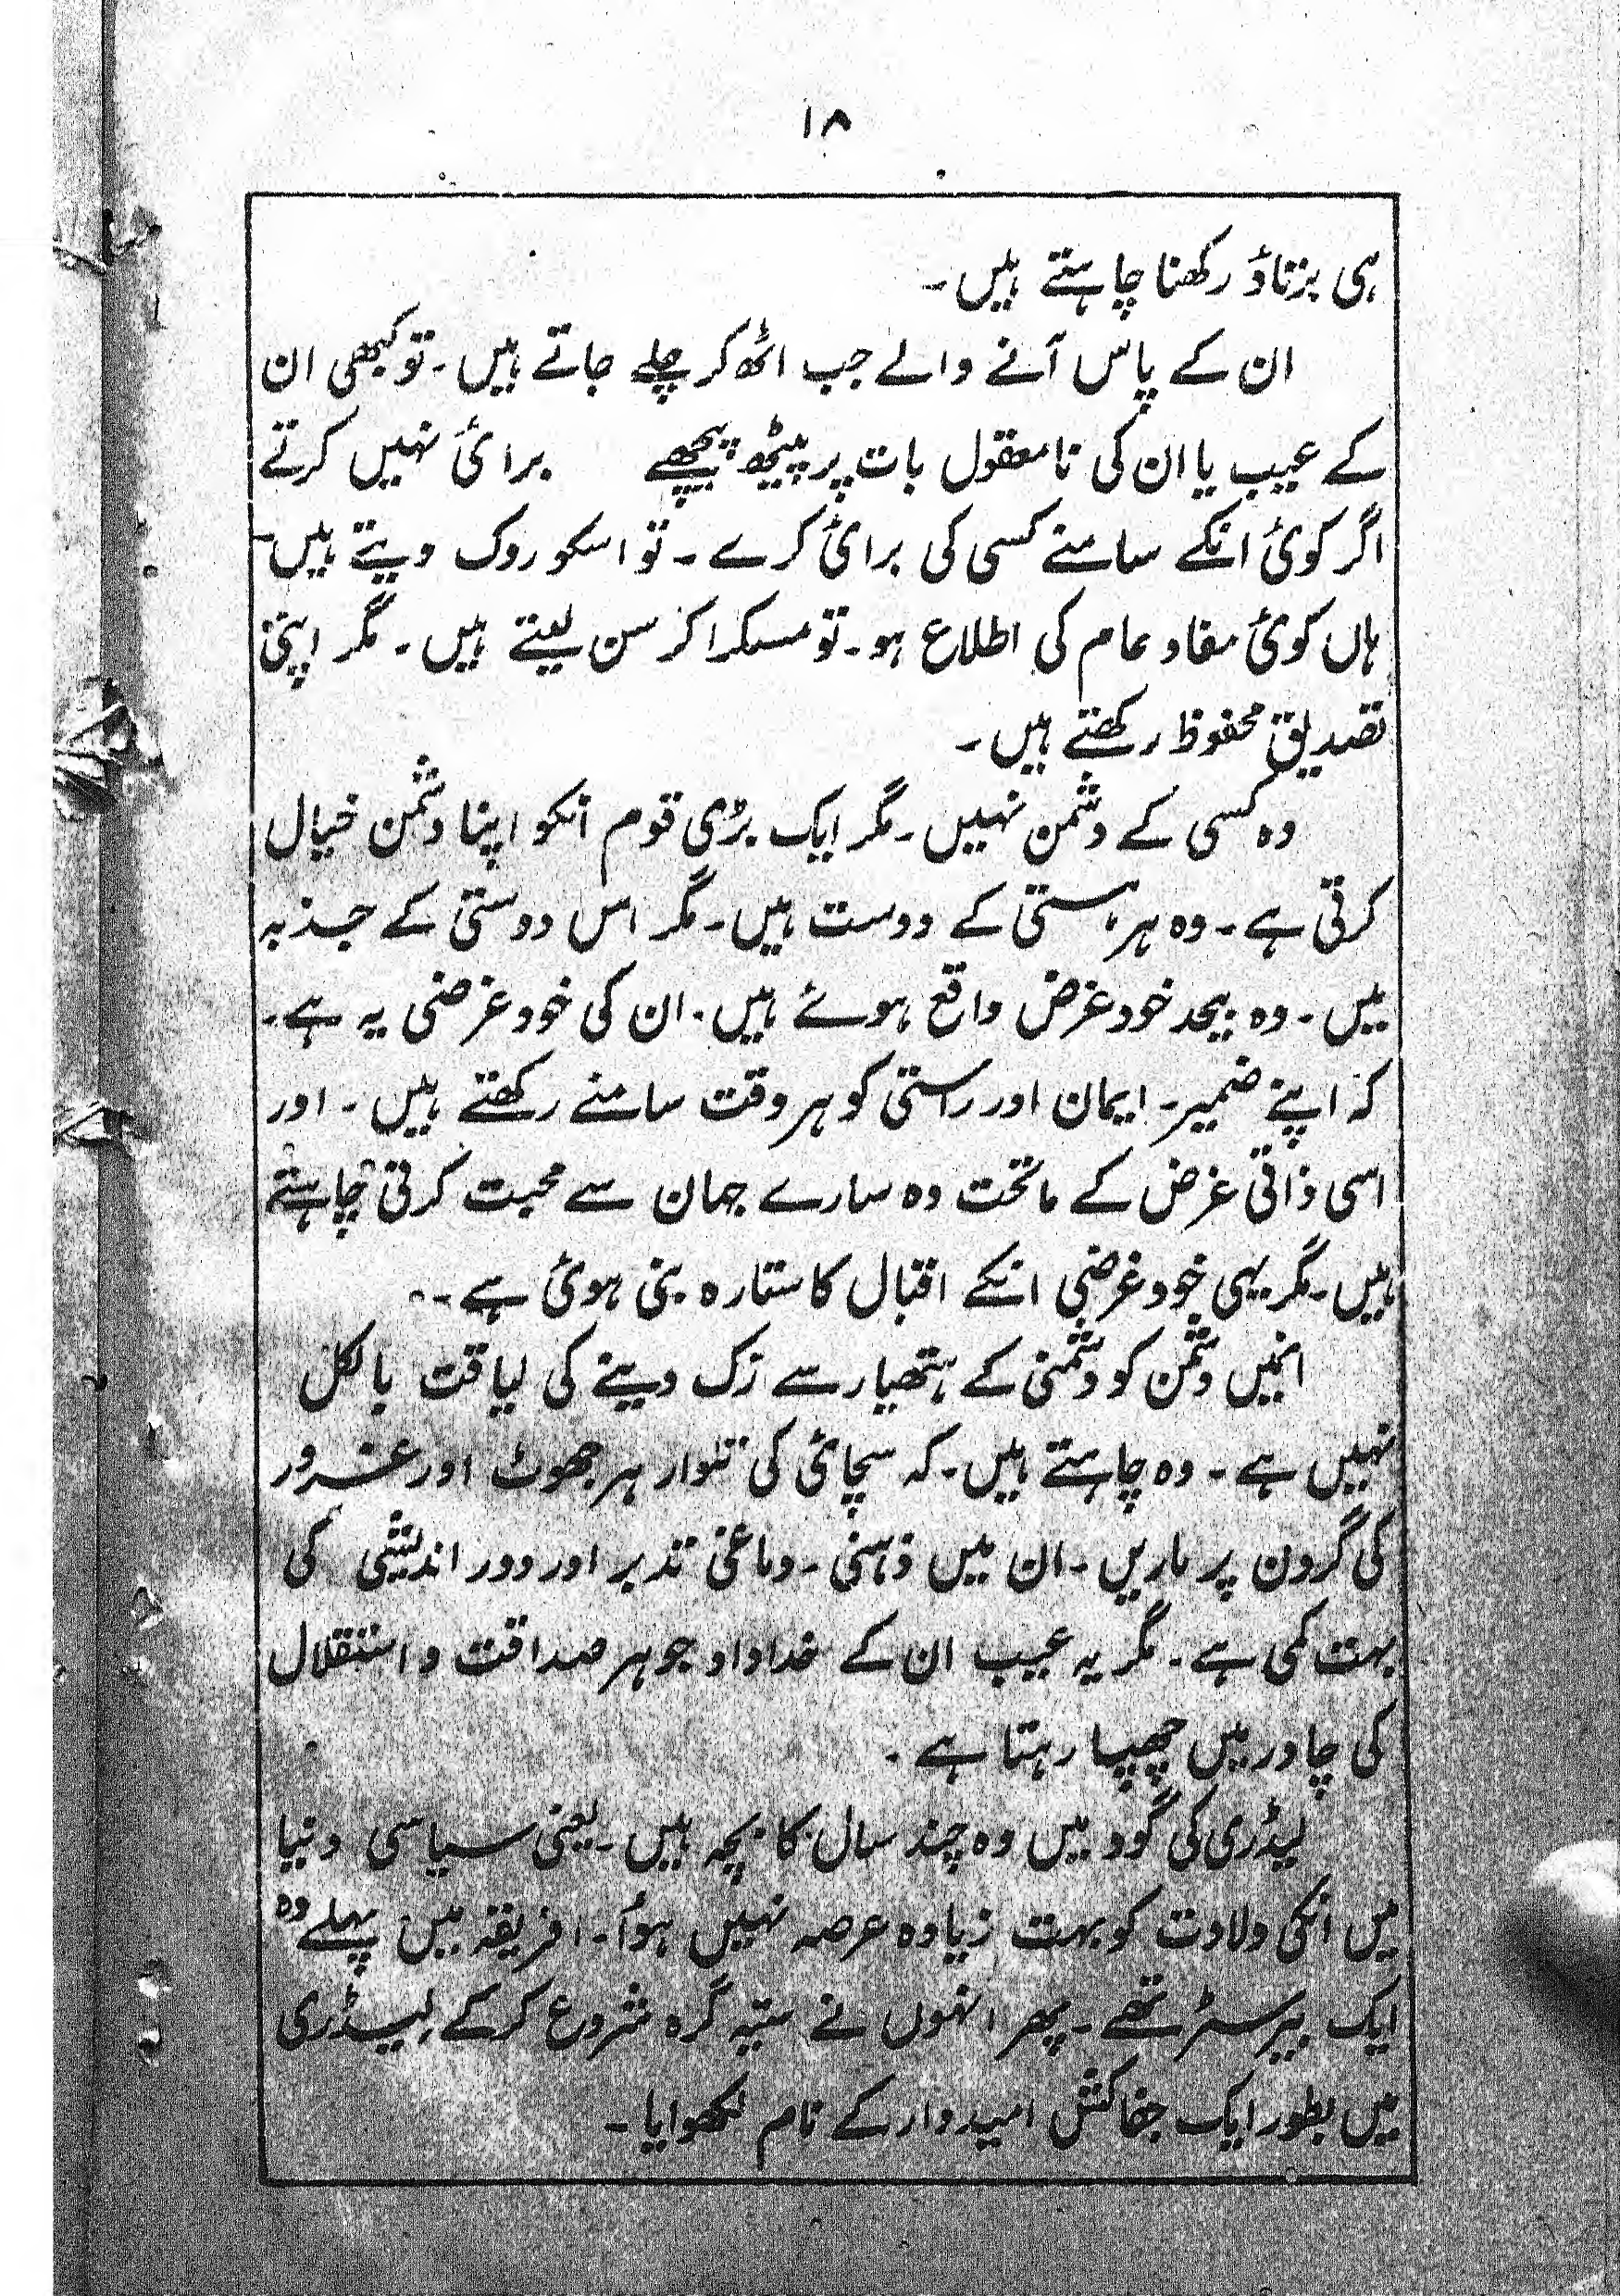 ۱۸
ہی برتاؤ رکھنا چاہتے ہیں۔
ان کے پاس آنے والے جب اٹھ کر چلے جاتے ہیں۔ تو کبھی ان
کے عیب یا ان کی نامعقول بات پر پیٹھ پیچھے برائی نہیں کرتے
اگر کوئی انکے سامنے کسی کی برائی کرے۔ تو اسکو روک دیتے ہیں۔
ہاں کوئی مفاد عام کی اطلاع ہو۔ تو مسکرا کر سن لیتے ہیں۔ مگر اپنی
تصدیق محفوظ رکھتے ہیں۔
وہ کسی کے دشمن نہیں۔ مگر ایک بڑی قوم انکو اپنا دشمن خیال
کرتی ہے۔ وہ ہر ہستی کے دوست ہیں۔ مگر اس دوستی کے جذبہ
میں۔ وہ بیحد خود غرض واقع ہوئے ہیں۔ ان کی خود غرضی یہ ہے۔
کہ اپنے ضمیر۔ ایمان اور راستی کو ہر وقت سامنے رکھتے ہیں۔ اور
اسی ذاتی غرض کے ماتحت وہ سارے جہان سے محبت کرنی چاہتے
ہیں۔ مگر یہی خود غرضی انکے اقبال کا ستارہ بنی ہوئی ہے۔
انہیں دشمن کو دشمنی کے ہتھیار سے زک دینے کی لیاقت بالکل
نہیں ہے۔ وہ چاہتے ہیں۔ کہ سچائی کی تلوار ہر جھوٹ اور غرور
کی گردن پر ماریں۔ ان میں ذہنی۔ دماغی تدبر اور دور اندیشی کی
بہت کمی ہے۔ مگر یہ عیب ان کے خداداد جوہر صداقت و استقلال
کی چادر میں چھپا رہتا ہے۔
لیڈری کی گود میں وہ چند سال کا بچہ ہیں۔ یعنی سیاسی دنیا
میں انکی ولادت کو بہت زیادہ عرصہ نہیں ہوا۔ افریقہ میں پہلے وہ
ایک بیرسٹر تھے۔ پھر انہوں نے ستیہ گرہ شروع کرکے لیڈری
میں بطور ایک جفاکش امیدوار کے نام لکھوایا۔